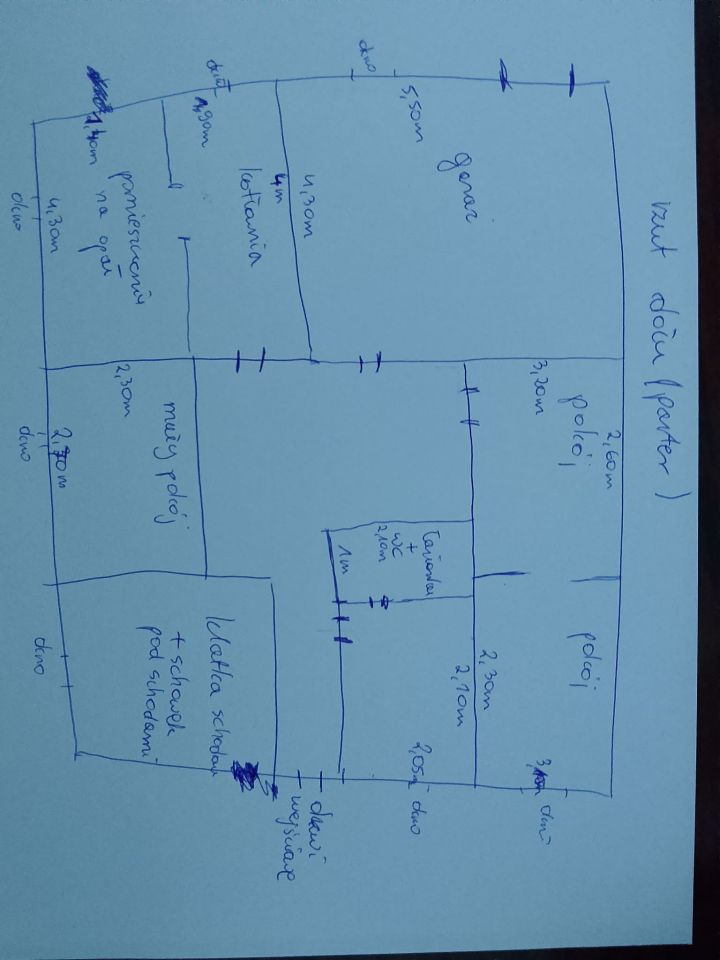 rzut dołu (parter)
garaż
5,50m
okno
4,30m
4m
kotłownia
1,90m
okno
1,40m
pomieszczenie
na opał
4,30m
okno
pokój
2,60m
3,20m
pokój
2,30m
3,10m
okno
łazienka
+
WC
2,10m
1m
2,10m
2,05m
okno
mały pokój
2,30m
2,70m
okno
klatka schodow
+ schowek
pod schodami
okno
drzwi
wejściowe